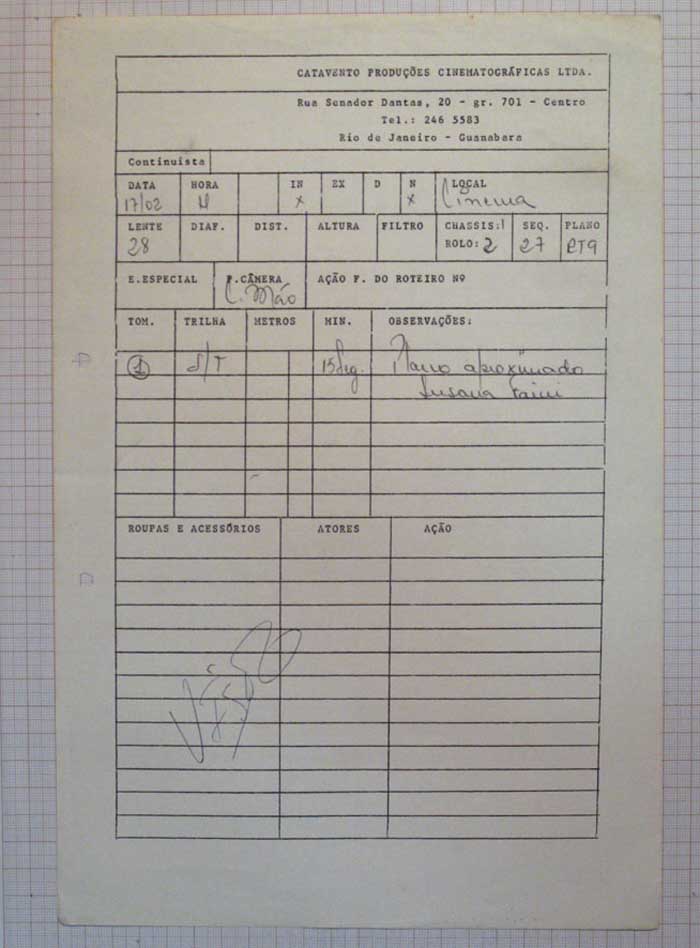 CATAVENTO PRODUÇÕES CINEMATOGRÁFICAS LTDA.
Rua Senador Dantas, 20 - gr. 701 - Centro
Tel.: 246 5583
Rio de Janeiro - Guanabara
Continuista
DATA HORA IN EX D N LOCAL
17/02 x x Cinema
LENTE DIAF. DIST. ALTURA FILTRO CHASSIS: 1 SEQ. PLANO
28 ROLO: 2 27 RT9
E.ESPECIAL P.CÂMERA AÇÃO F. DO ROTEIRO Nº
C. Mão
TOM. TRILHA METROS MIN. OBSERVAÇÕES:
1 S/T 15 Seg. Plano aproximado
Susana Faini
ROUPAS E ACESSÓRIOS ATORES AÇÃO